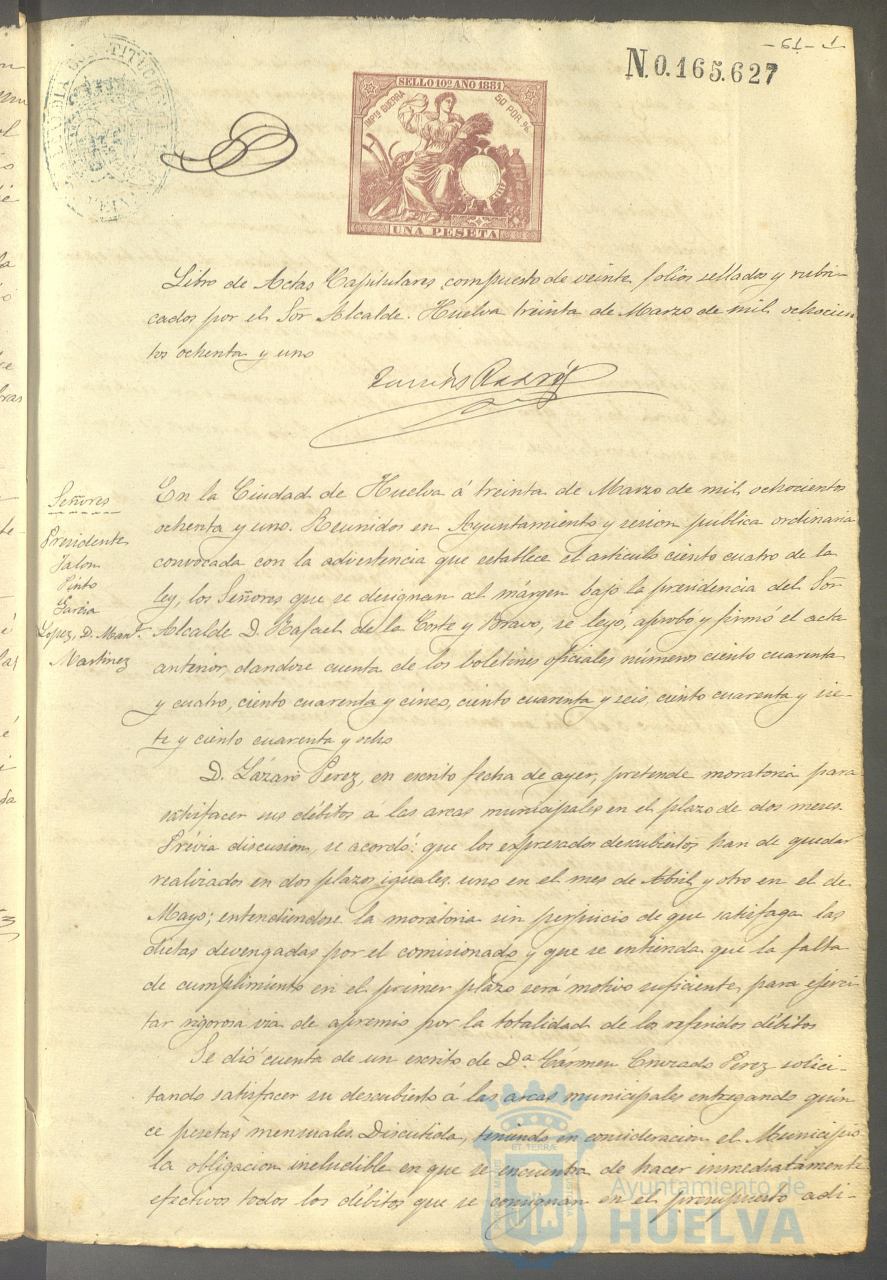 N.0.165.627
SELLO 10º AÑO 1881
IMPTº GUERRA 50 POR %
UNA PESETA
Libro de Actas Capitulares, compuesto de veinte folios sellados y rubri-
cados por el Sor Alcalde. Huelva treinta de Marzo de mil ochocien
tos ochenta y uno
Señores
Presidente
Jalon
Pinto
Garcia
Lopez, D. Manl.
Martinez
En la Ciudad de Huelva á treinta de Marzo de mil ochocientos
ochenta y uno. Reunidos en Ayuntamiento y sesion publica ordinaria
convocada con la advertencia que establece el articulo ciento cuatro de la
ley, los Señores que se designan al márgen bajo la presidencia del Sor
Alcalde D. Rafael de la Corte y Bravo, se leyó, aprobó y firmó el acta
anterior, dandose cuenta de los boletines oficiales números ciento cuarenta
y cuatro, ciento cuarenta y cinco, ciento cuarenta y seis, ciento cuarenta y sie-
te y ciento cuarenta y ocho
D. Lázaro Perez, en escrito fecha de ayer, pretende moratoria para
satisfacer sus débitos á las arcas municipales en el plazo de dos meses.
Prévia discusion, se acordó: que los expresados descubiertos han de quedar
realizados en dos plazos iguales uno en el mes de Abril y otro en el de
Mayo; entendiendose la moratoria sin perjuicio de que satisfaga las
dietas devengadas por el comisionado y que se entienda que la falta
de cumplimiento en el primer plazo será motivo suficiente, para ejerci-
tar rigorosa via de apremio por la totalidad de los referidos débitos
Se dió cuenta de un escrito de Da. Cármen Cruzado Perez solici-
tando satisfacer su descubierto á las arcas municipales entregando quin
ce pesetas mensuales. Discutida, teniendo en consideracion el Municipio
la obligacion ineludible en que se encuentra de hacer inmediatamente
efectivos todos los débitos que se consignan en el presupuesto adi-
Ayuntamiento de
HUELVA